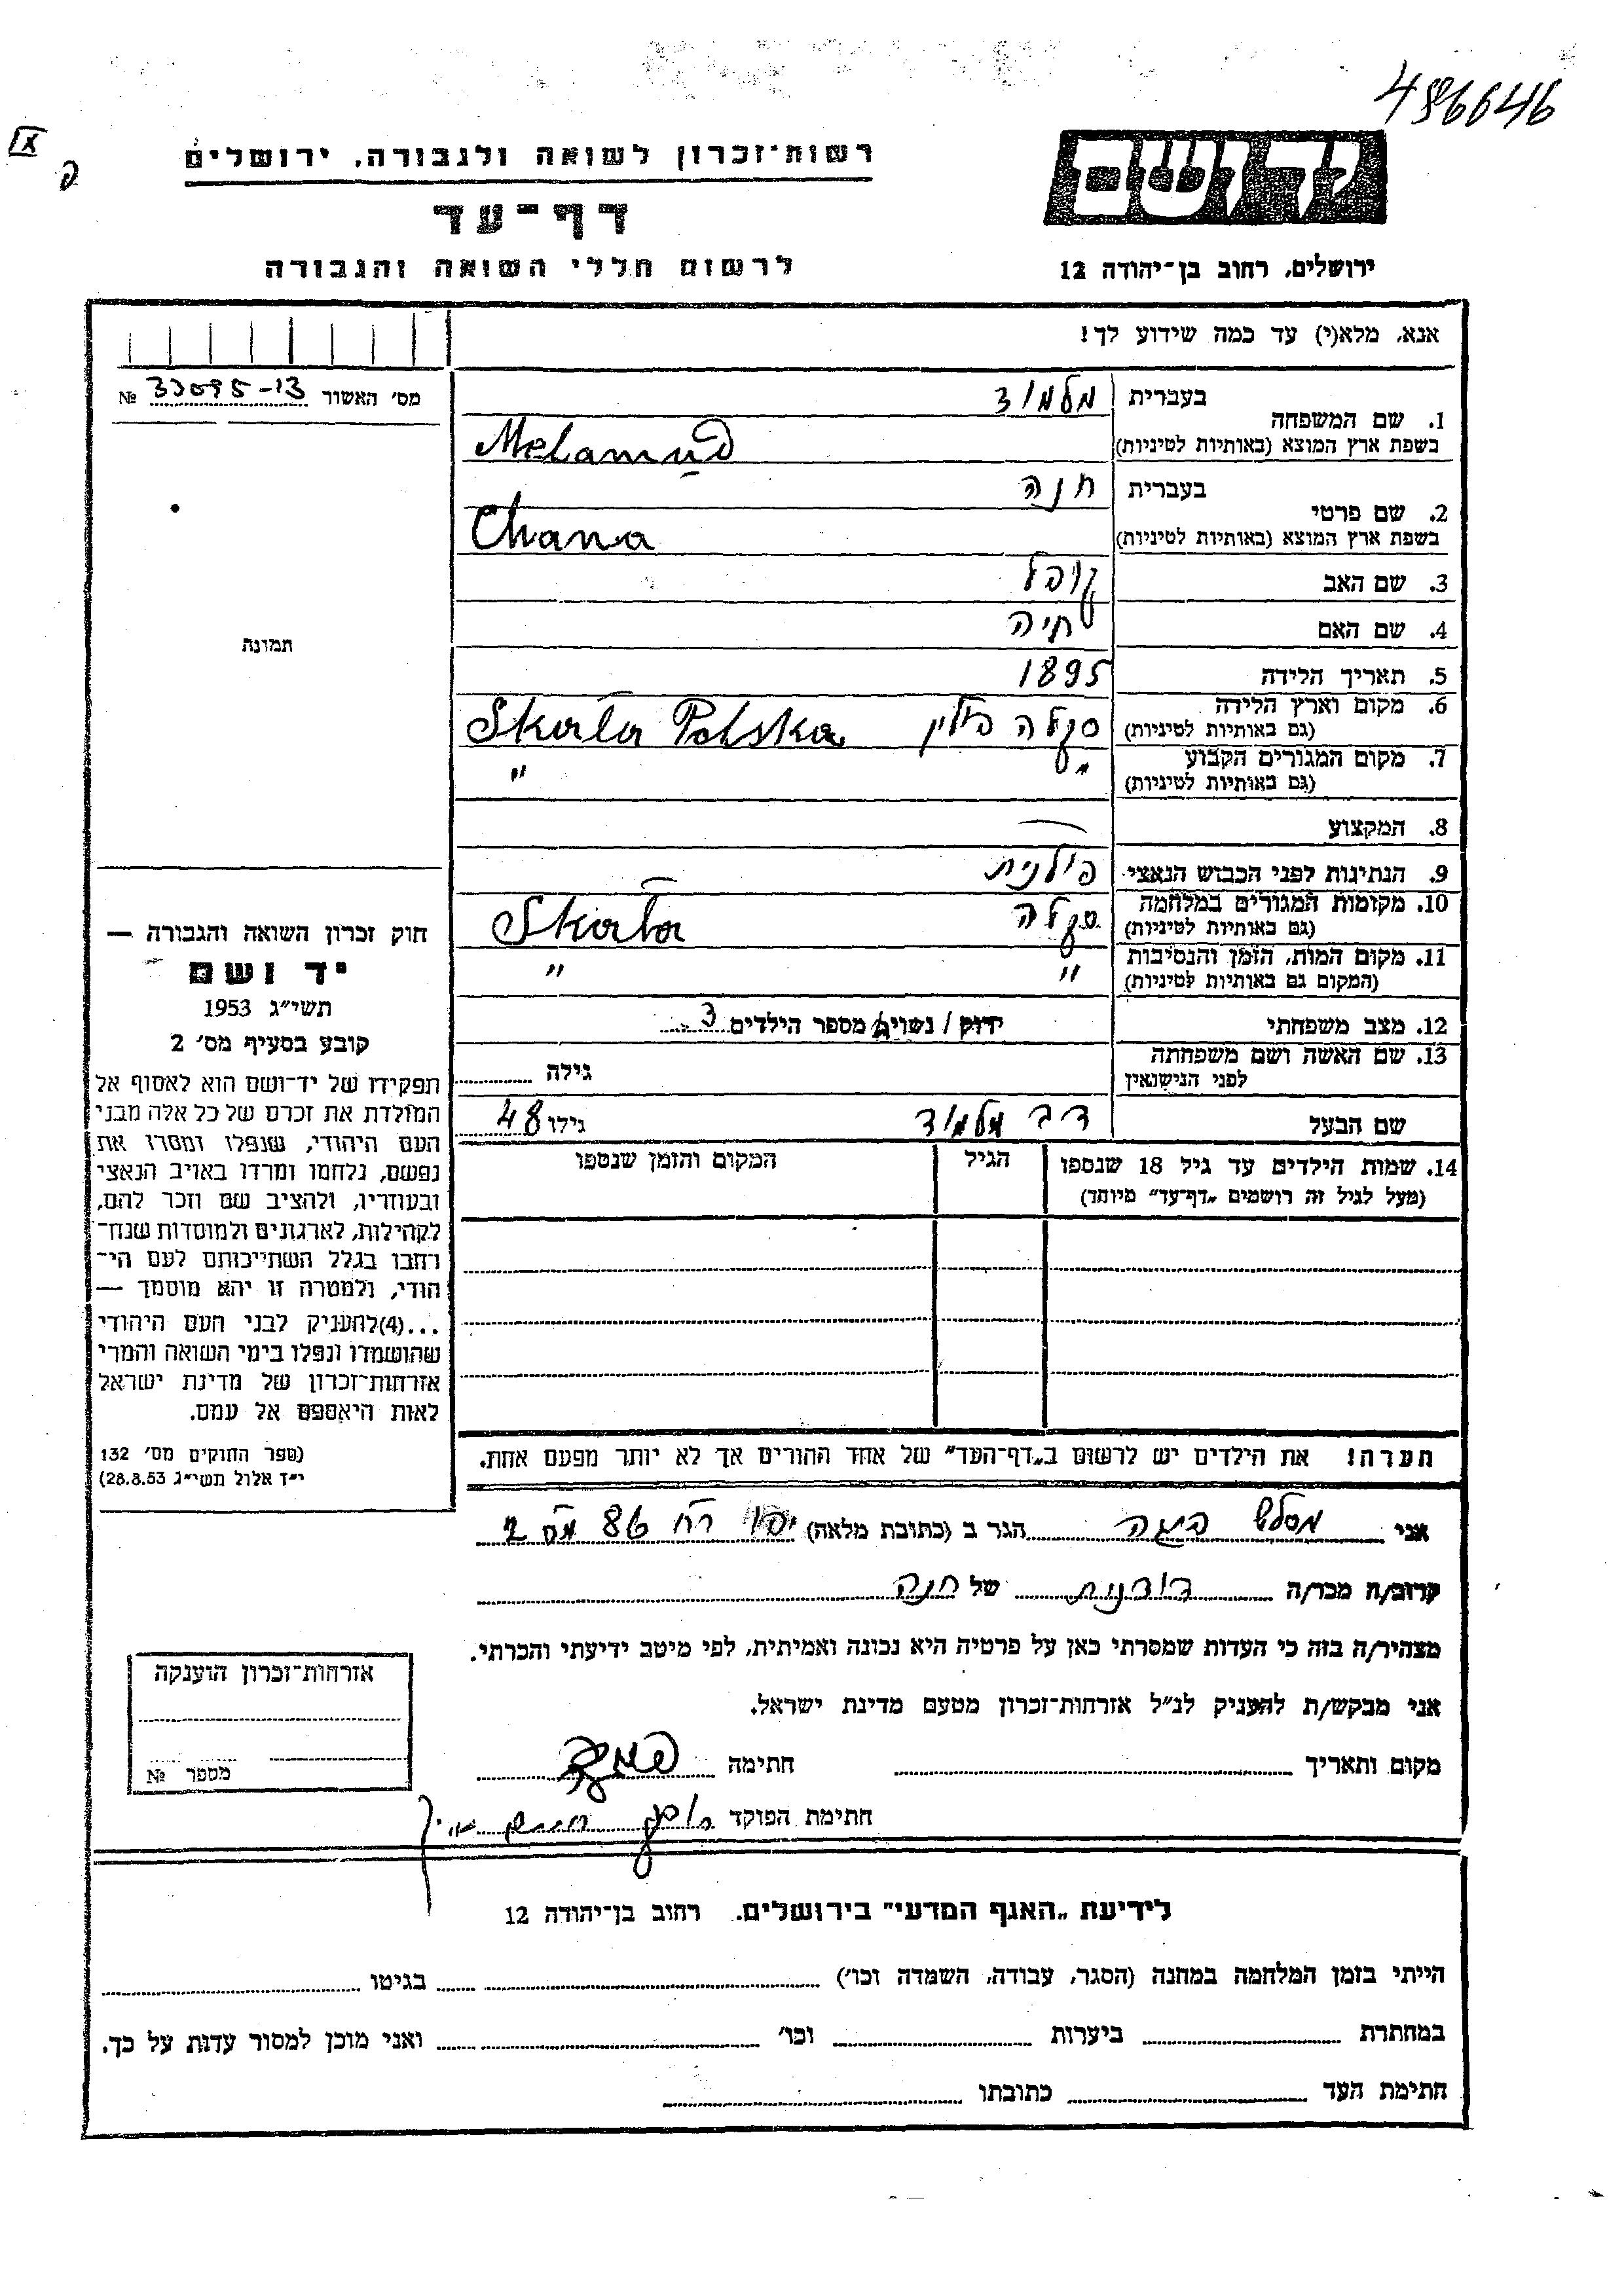 486646
רשות־זכרון לשואה ולגבורה, ירושלים
דף־עד
לרשום חללי השואה והגבורה
יד ושם
ירושלים, רחוב בן־יהודה 12
אנא, מלא(י) עד כמה שידוע לך!
מס׳ האשור №
1. שם המשפחה בעברית מלמוד
בשפת ארץ המוצא (באותיות לטיניות) Melamud
2. שם פרטי בעברית חנה
בשפת ארץ המוצא (באותיות לטיניות) Chana
3. שם האב קופל
4. שם האם חיה
5. תאריך הלידה 1895
6. מקום וארץ הלידה סקלה פולין Skała Polska
(גם באותיות לטיניות)
7. מקום המגורים הקבוע " "
(גם באותיות לטיניות)
8. המקצוע —
9. הנתינות לפני הכבוש הנאצי פולנית
10. מקומות המגורים במלחמה סקלה Skała
(גם באותיות לטיניות)
11. מקום המות, הזמן והנסיבות " "
(המקום גם באותיות לטיניות)
12. מצב משפחתי רווק / נשוי / מספר הילדים 3
13. שם האשה ושם משפחתה
לפני הנישואין גילה
שם הבעל דב מלמוד גילו 48
14. שמות הילדים עד גיל 18 שנספו הגיל המקום והזמן שנספו
(מעל לגיל זה רושמים „דף־עד" מיוחד)
תמונה
חוק זכרון השואה והגבורה —
יד ושם
תשי״ג 1953
קובע בסעיף מס׳ 2
תפקידו של יד־ושם הוא לאסוף אל
המולדת את זכרם של כל אלה מבני
העם היהודי, שנפלו ומסרו את
נפשם, נלחמו ומרדו באויב הנאצי
ובעוזריו, ולהציב שם וזכר להם,
לקהילות, לארגונים ולמוסדות שנח־
רבו בגלל השתייכותם לעם הי־
הודי, ולמטרה זו יהא מוסמך —
...(4)להעניק לבני העם היהודי
שהושמדו ונפלו בימי השואה והמרי
אזרחות־זכרון של מדינת ישראל
לאות היאספם אל עמם.
(ספר החוקים מס׳ 132
י״ד אלול תשי״ג 28.8.53)
הערה! את הילדים יש לרשום ב„דף־העד" של אחד ההורים אך לא יותר מפעם אחת.
אני הגר ב (כתובת מלאה) יפו רח 86 מס 2
קרוב/ה מכר/ה דודנית של חנה
מצהיר/ה בזה כי העדות שמסרתי כאן על פרטיה היא נכונה ואמיתית, לפי מיטב ידיעתי והכרתי.
אני מבקש/ת להעניק לנ״ל אזרחות־זכרון מטעם מדינת ישראל.
מקום ותאריך חתימה
חתימת הפוקד
אזרחות־זכרון הוענקה
מספר №
לידיעת „האגף המדעי" בירושלים. רחוב בן־יהודה 12
הייתי בזמן המלחמה במחנה (הסגר, עבודה, השמדה וכו׳) בגיטו
במחתרת ביערות וכו׳ ואני מוכן למסור עדות על כך.
חתימת העד כתובתו